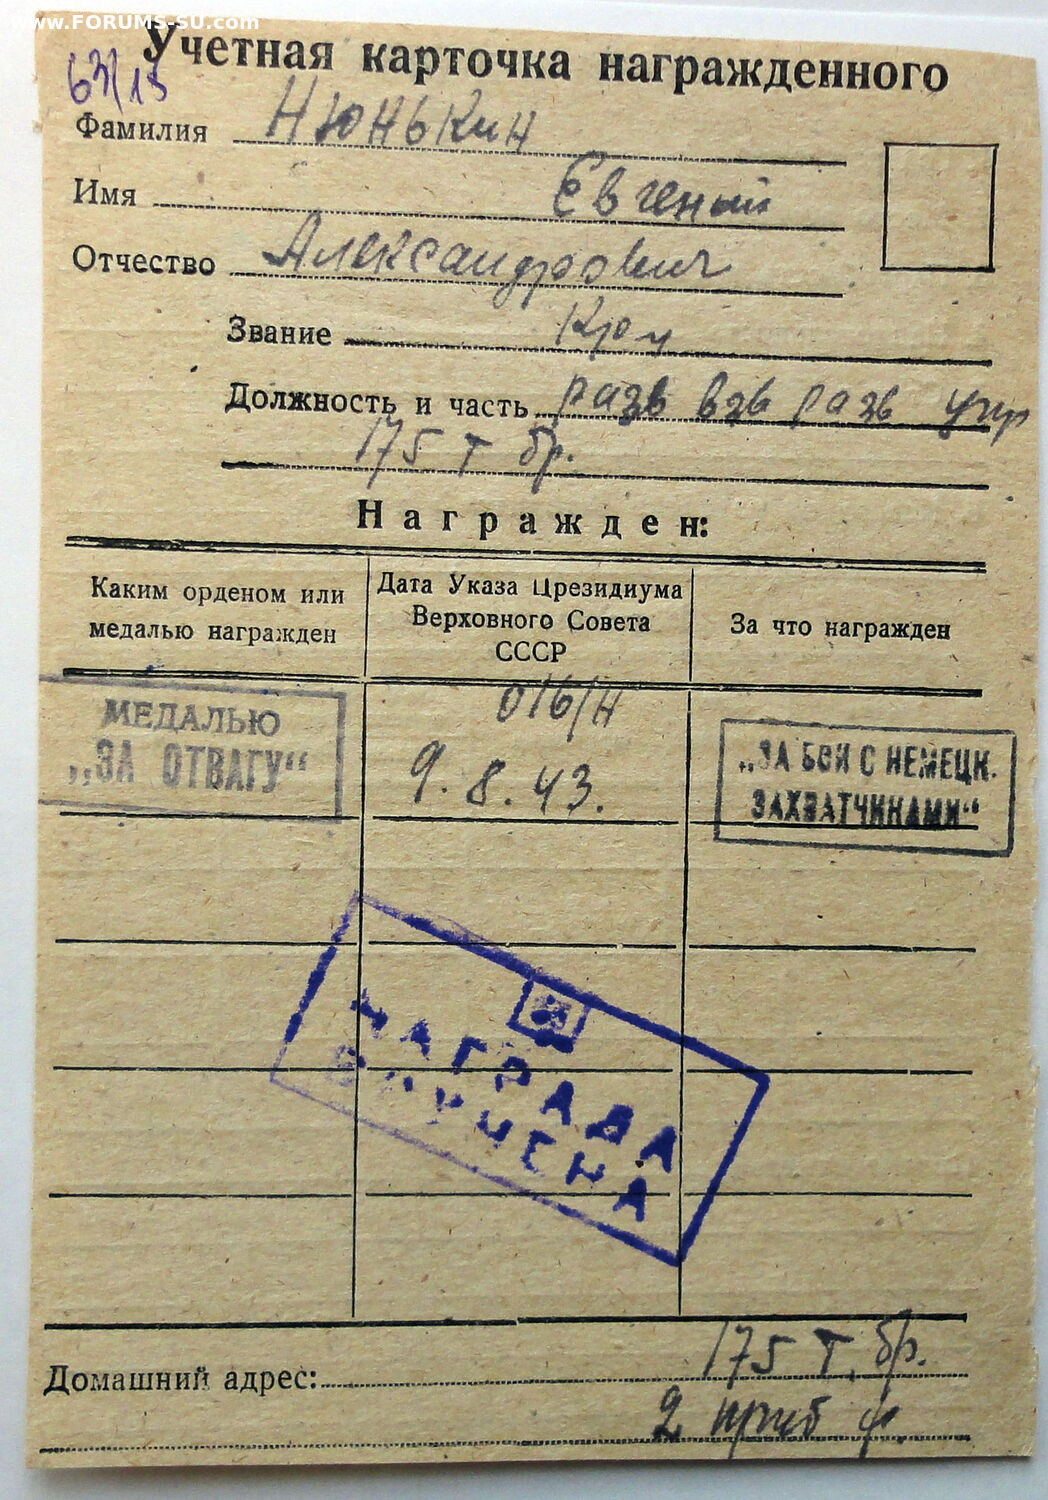 www.FORUMS-SU.com
Учетная карточка награжденного
63/15
Фамилия Нюнькин
Имя Евгений
Отчество Александрович
Звание Кр-ц
Должность и часть разв взв разв упр
175 т бр.
Награжден:
Каким орденом или медалью награжден
Дата Указа Президиума Верховного Совета СССР
За что награжден
016/н
МЕДАЛЬЮ
„ЗА ОТВАГУ“
9.8.43.
„ЗА БОИ С НЕМЕЦК.
ЗАХВАТЧИКАМИ“
НАГРАДА
ВРУЧЕНА
Домашний адрес: 175 т. бр.
2 приб ф.